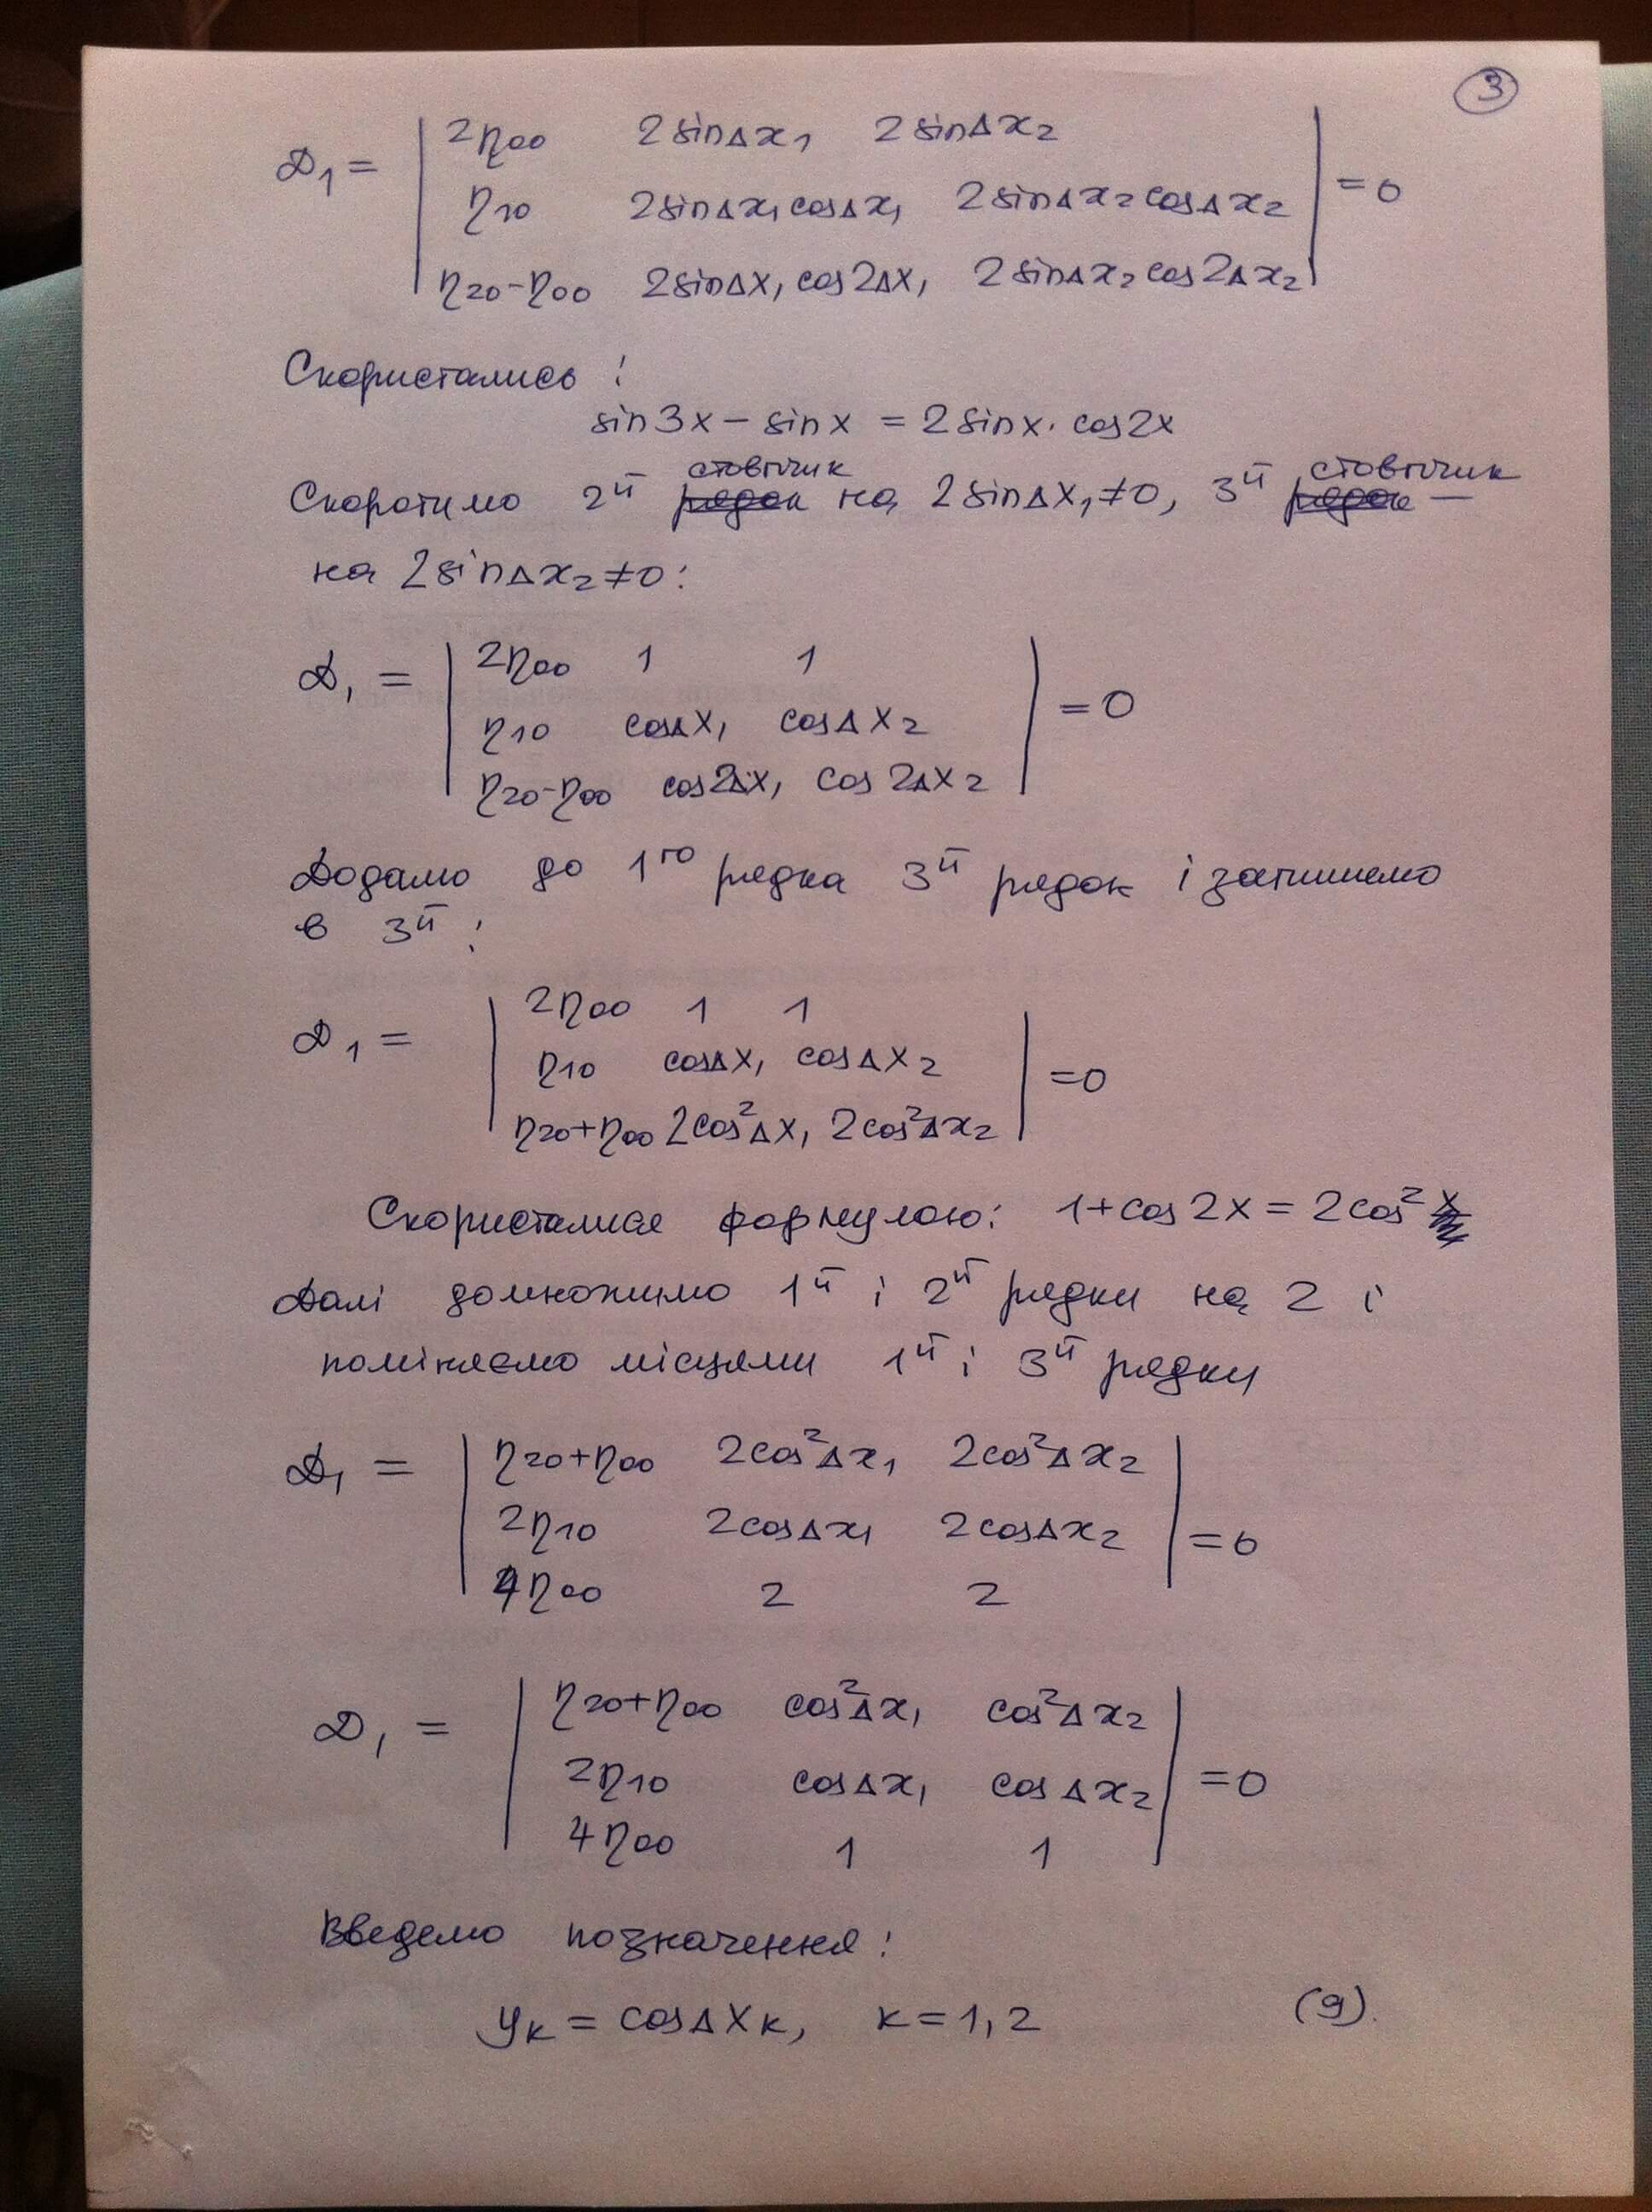 3
D₁ = | 2η₀₀ 2sinΔx₁ 2sinΔx₂ |
| η₁₀ 2sinΔx₁cosΔx₁ 2sinΔx₂cosΔx₂ | = 0
| η₂₀-η₀₀ 2sinΔx₁cos2Δx₁ 2sinΔx₂cos2Δx₂ |
Скористались:
sin3x - sinx = 2sinx·cos2x
стовпчик стовпчик
Скоротимо 2й рядок на 2sinΔx₁≠0, 3й рядок —
на 2sinΔx₂≠0:
D₁ = | 2η₀₀ 1 1 |
| η₁₀ cosΔx₁ cosΔx₂ | = 0
| η₂₀-η₀₀ cos2Δx₁ cos2Δx₂ |
Додамо до 1го рядка 3й рядок і запишемо
в 3й:
D₁ = | 2η₀₀ 1 1 |
| η₁₀ cosΔx₁ cosΔx₂ | = 0
| η₂₀+η₀₀ 2cos²Δx₁ 2cos²Δx₂ |
Скористалися формулою: 1+cos2x = 2cos²x
Далі домножимо 1й і 2й рядки на 2 і
поміняємо місцями 1й і 3й рядки
D₁ = | η₂₀+η₀₀ 2cos²Δx₁ 2cos²Δx₂ |
| 2η₁₀ 2cosΔx₁ 2cosΔx₂ | = 0
| 4η₀₀ 2 2 |
D₁ = | η₂₀+η₀₀ cos²Δx₁ cos²Δx₂ |
| 2η₁₀ cosΔx₁ cosΔx₂ | = 0
| 4η₀₀ 1 1 |
Введемо позначення:
yₖ = cosΔxₖ, k=1,2 (9).